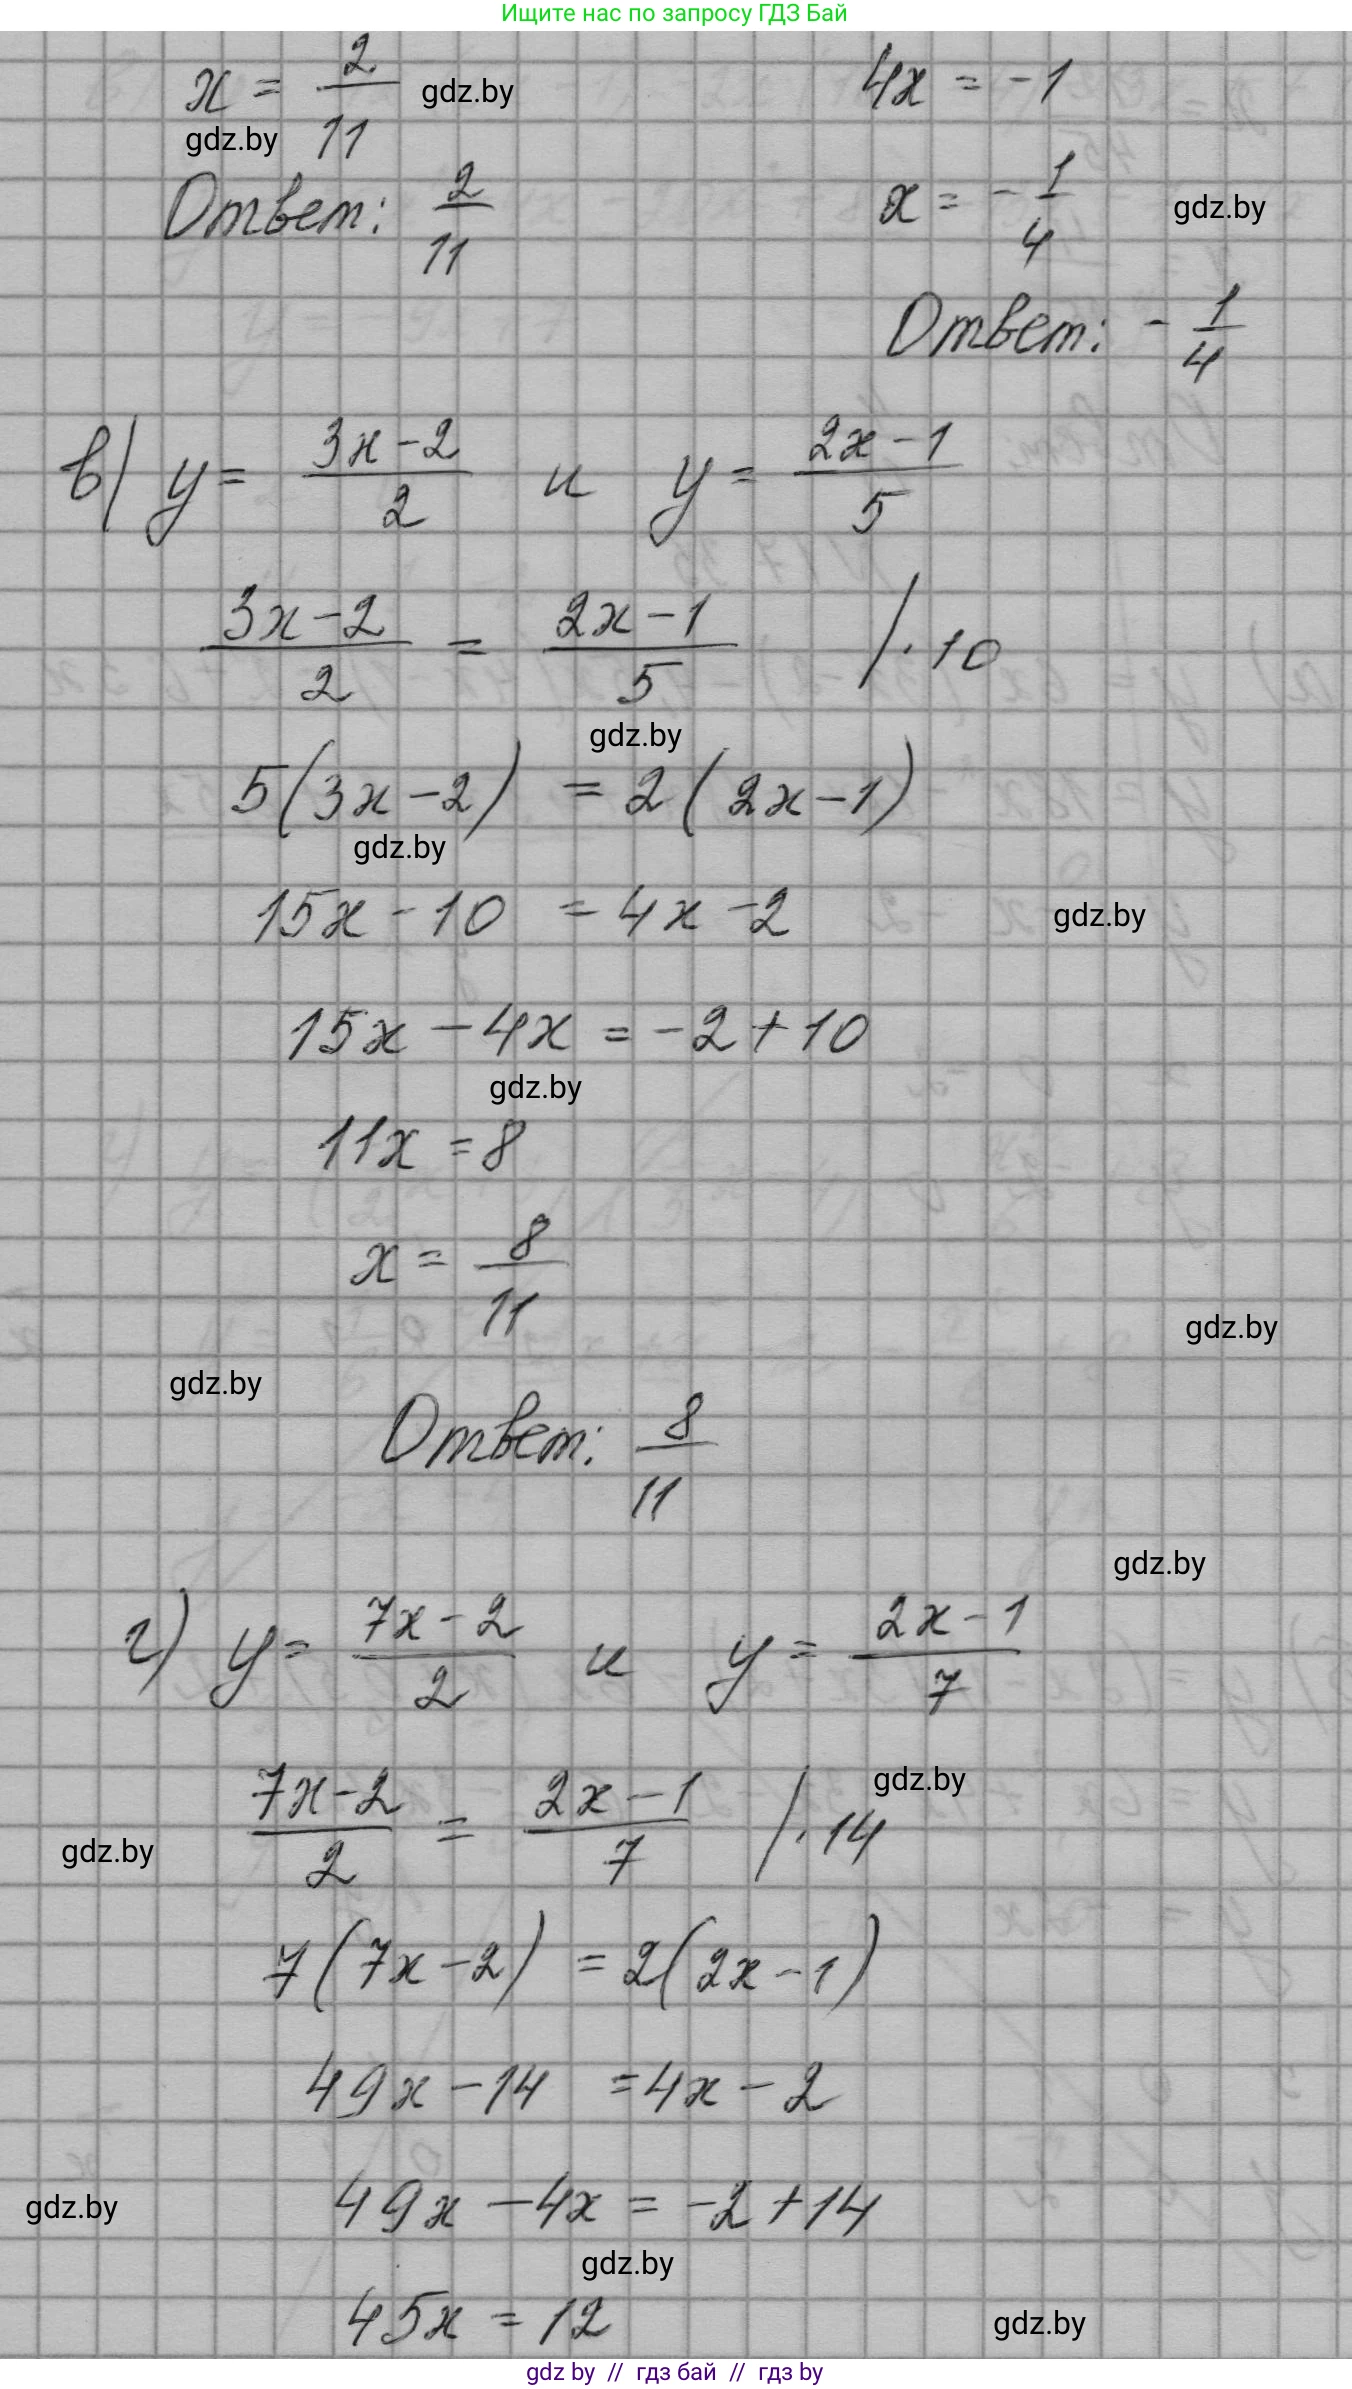 Ищите нас по запросу ГДЗ Бай
x = 2/11 gdz.by
gdz.by
Ответ: 2/11
4x = -1
x = - 1/4 gdz.by
Ответ: - 1/4
в) y = (3x-2)/2 и y = (2x-1)/5
(3x-2)/2 = (2x-1)/5 /·10
gdz.by
5(3x-2) = 2(2x-1)
gdz.by
15x - 10 = 4x - 2 gdz.by
15x - 4x = -2 + 10
gdz.by
11x = 8
x = 8/11
gdz.by
gdz.by
Ответ: 8/11
gdz.by
г) y = (7x-2)/2 и y = (2x-1)/7
gdz.by
(7x-2)/2 = (2x-1)/7 /·14
gdz.by
7(7x-2) = 2(2x-1)
49x - 14 = 4x - 2
49x - 4x = -2 + 14
gdz.by
gdz.by
45x = 12 gdz.by
gdz by // гдз бай // гдз by